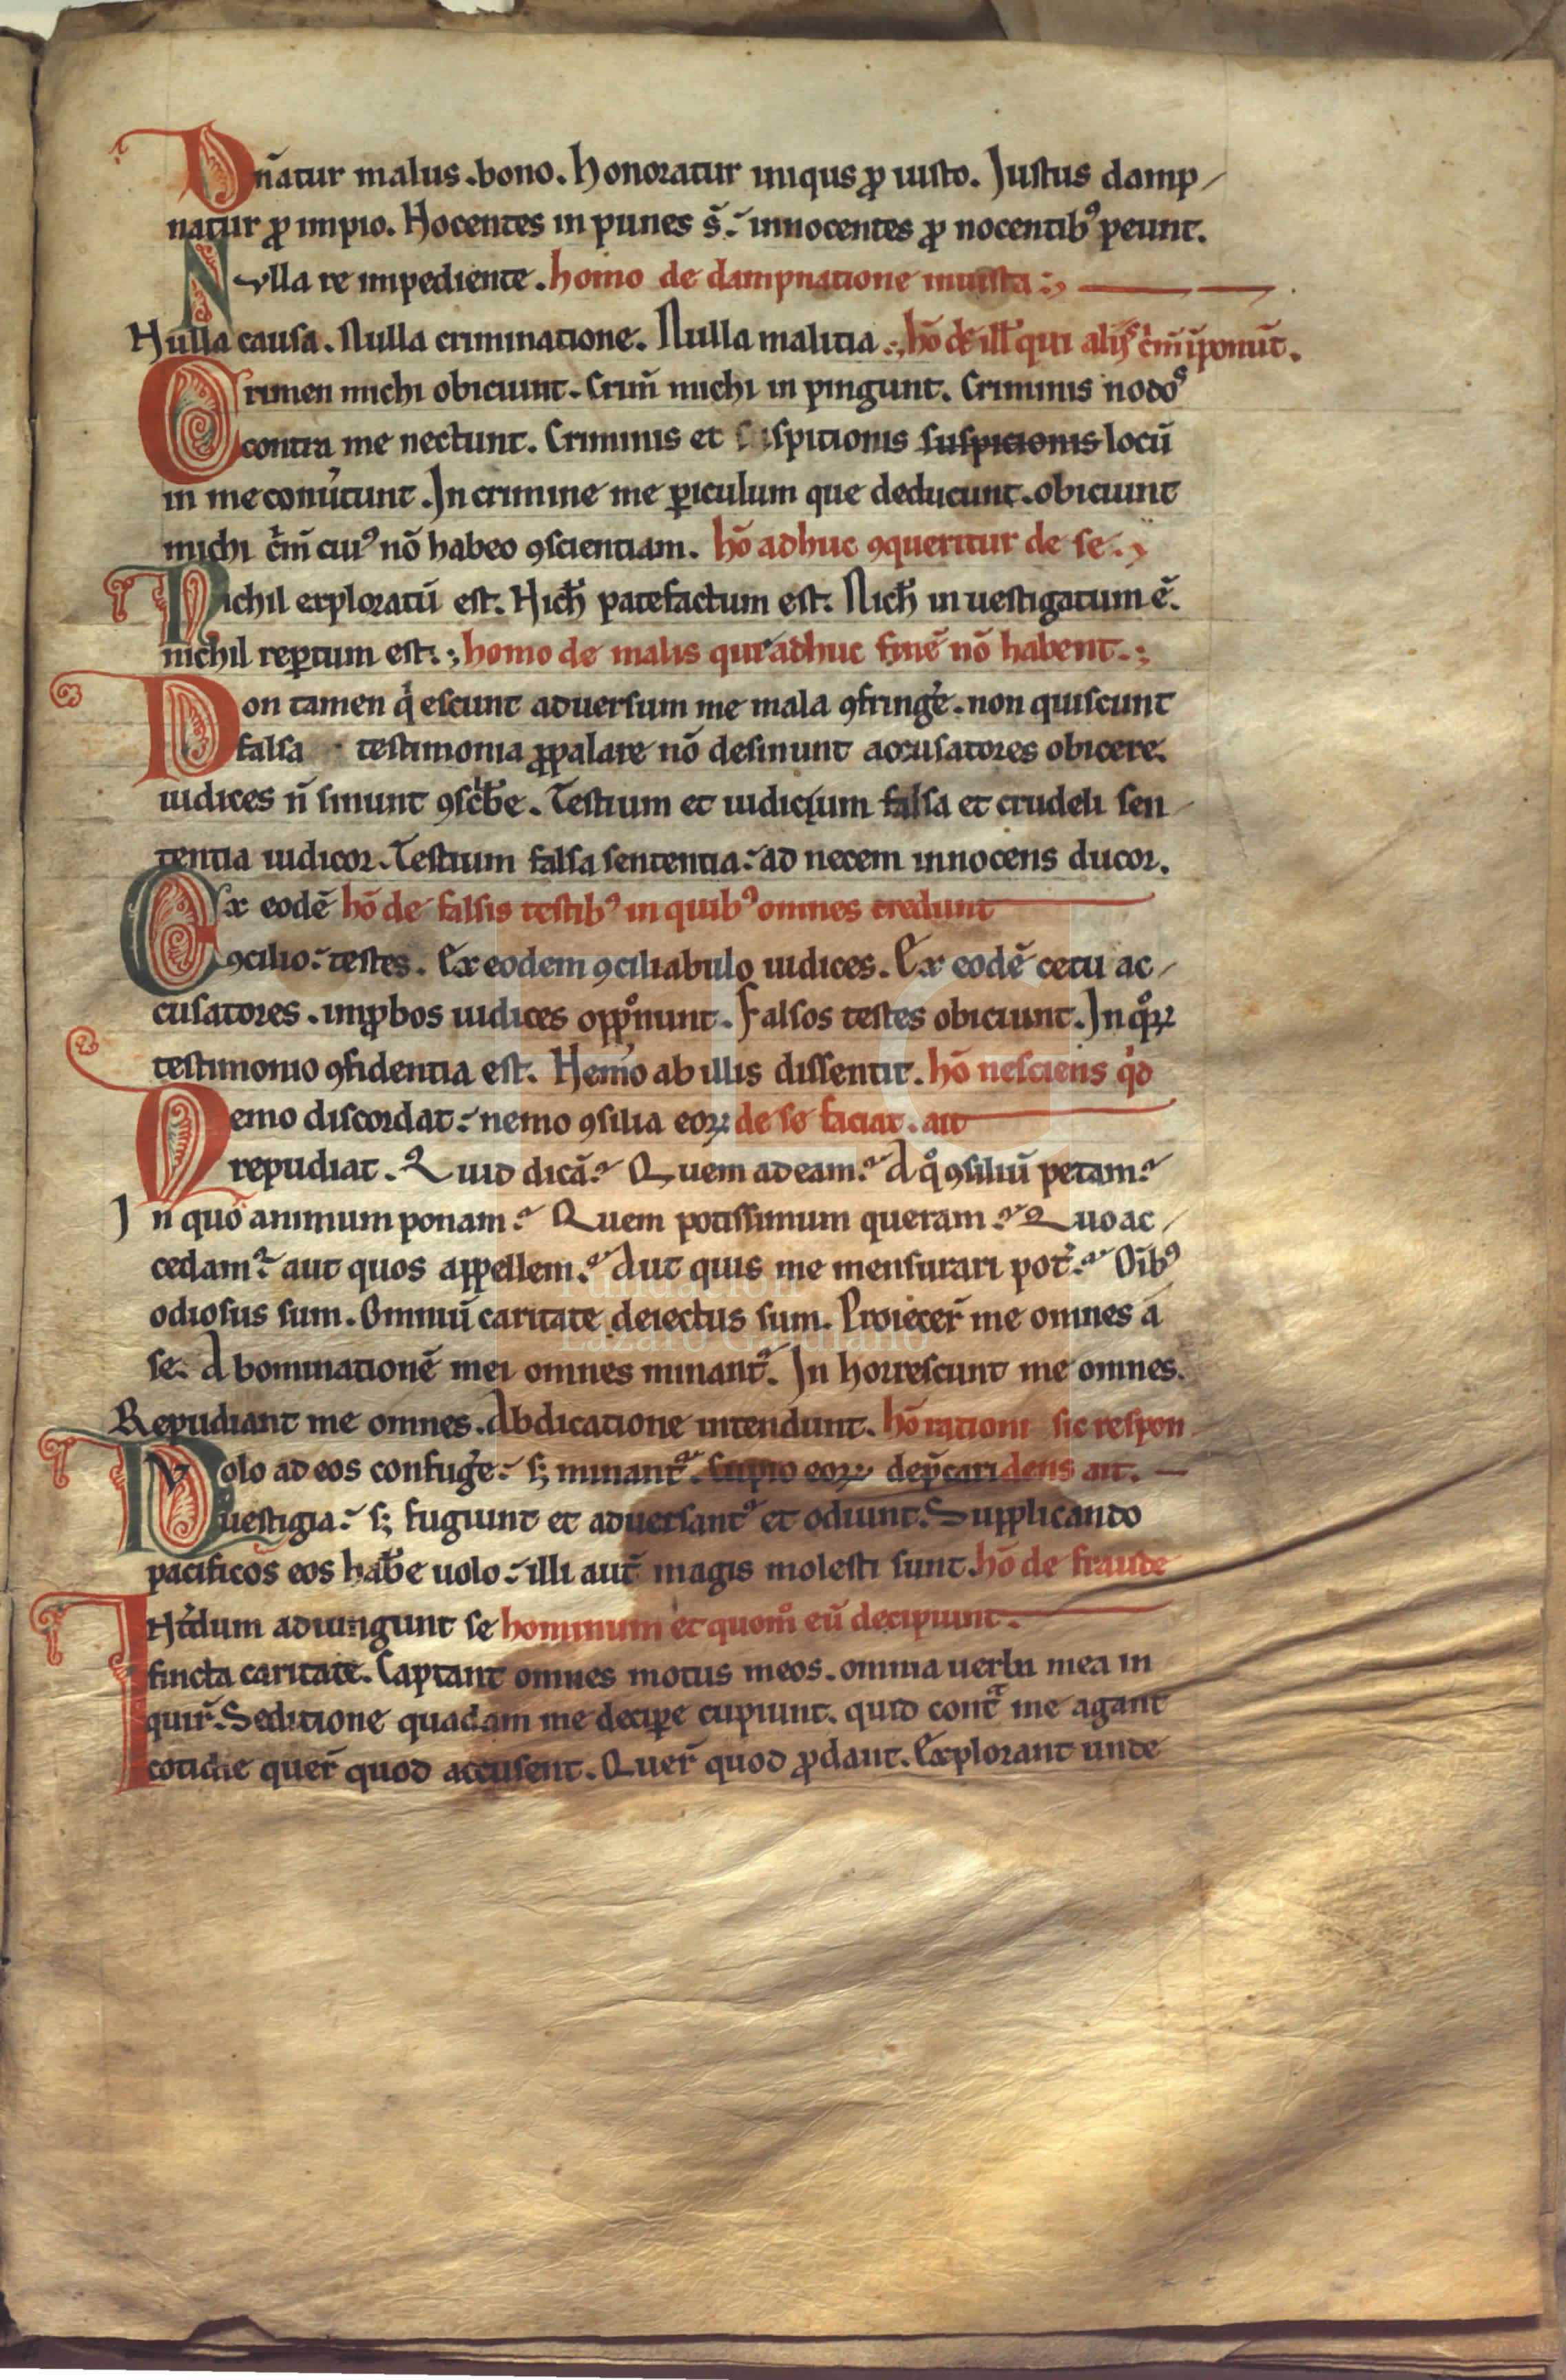 Dn̄atur malus .bono. honoratur iniqus ꝓ iusto. Justus damp/
natur ꝓ impio. Nocentes in punes s̄. innocentes ꝓ nocentibꝰ ꝑeunt.
Nulla re impediente. homo de dampnatione iniusta
Nulla causa. Nulla criminatione. Nulla malicia. hō de qui cͥm̄ īponūt.
Crimen michi obiciunt. Crim̄ michi in pingunt. Criminis nodoˢ
contra me nectunt. Criminis et suspitionis suspicionis locū
in me coniciunt. In crimine me ꝑiculum que deducunt. obiciunt
michi cͥm̄ cuiꝰ nō habeo ꝯscientiam. hō adhuc ꝯqueritur de se.
Nichil exploratū est. Nich̄ patefactum est. Nich̄ inuestigatum ē.
nichil reꝑtum est. homo de malis qui adhuc finē nō habent.
Non tamen qͥescunt aduersum me mala ꝯfringe. non quiscunt
falsa testimonia ꝓpalare nō desinunt accusatores obicere.
iudices n̄ sinunt ꝯscͥb̄e. Testium et iudicium falsa et crudeli sen
tentia iudicor. Testium falsa sententia. ad necem innocens ducor.
Ex eodē hō de falsis testibꝰ in quibꝰ omnes credunt
ꝯcilio. testes. Ex eodem ꝯciliabulo iudices. Ex eodē cetu ac/
cusatores. inꝓbos iudices opp̊nunt. Falsos testes obiciunt. In qͦꝝ
testimonio ꝯfidentia est. Nemo ab illis dissentit. hō nesciens qͥd
Nemo discordat. nemo ꝯsilia eoꝝ de se faciat. ait
repudiat. Quid dicā. Quem adeam. A qͦ ꝯsiliū petam.
In quo animum ponam. Quem potissimum queram. Quo ac/
cedam. aut quos appellem. Aut quis me mensurari pot̄. Oīb̄ꝰ
odiosus sum. Omniū caritate deiectus sum. Proiecer̄ me omnes a
se. Abominationē mei omnes minant᷑. In horrescunt me omnes.
Repudiant me omnes. Abdicatione intendunt. hō rationi sic respon
Volo ad eos confuge. sꝫ minant᷑. cupio eoꝝ dep̄cari dens ait.
uestigia. sꝫ fugiunt et aduersant᷑ et odiunt. Supplicando
pacificos eos hab̄e uolo. illi aut̄ magis molesti sunt. hō de fraude
Int̄dum adiungunt se hominum et quom̊ eū decipiunt.
fincta caritate. Captant omnes motus meos. omnia uerba mea in
quir̄. Seditione quadam me deciꝑe cupiunt. quid cont̄ me agant
cotidie quer̄ quod accusent. Quer̄ quod ꝓdant. Explorant unde
Fundación
Lázaro Galdiano